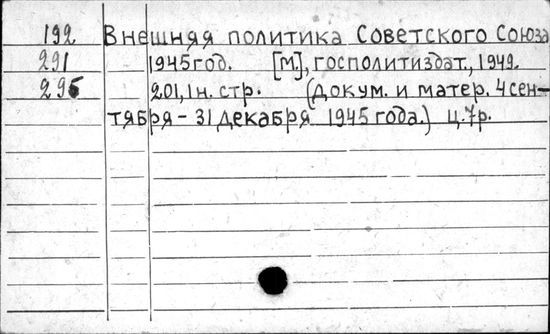 192 Внешняя политика Советского Союза
291 1945 год. [М.], госполитиздат, 1949.
295 201, 1 н. стр. (докум. и матер. 4 сен-
тября – 31 декабря 1945 года.) ц. 7 р.